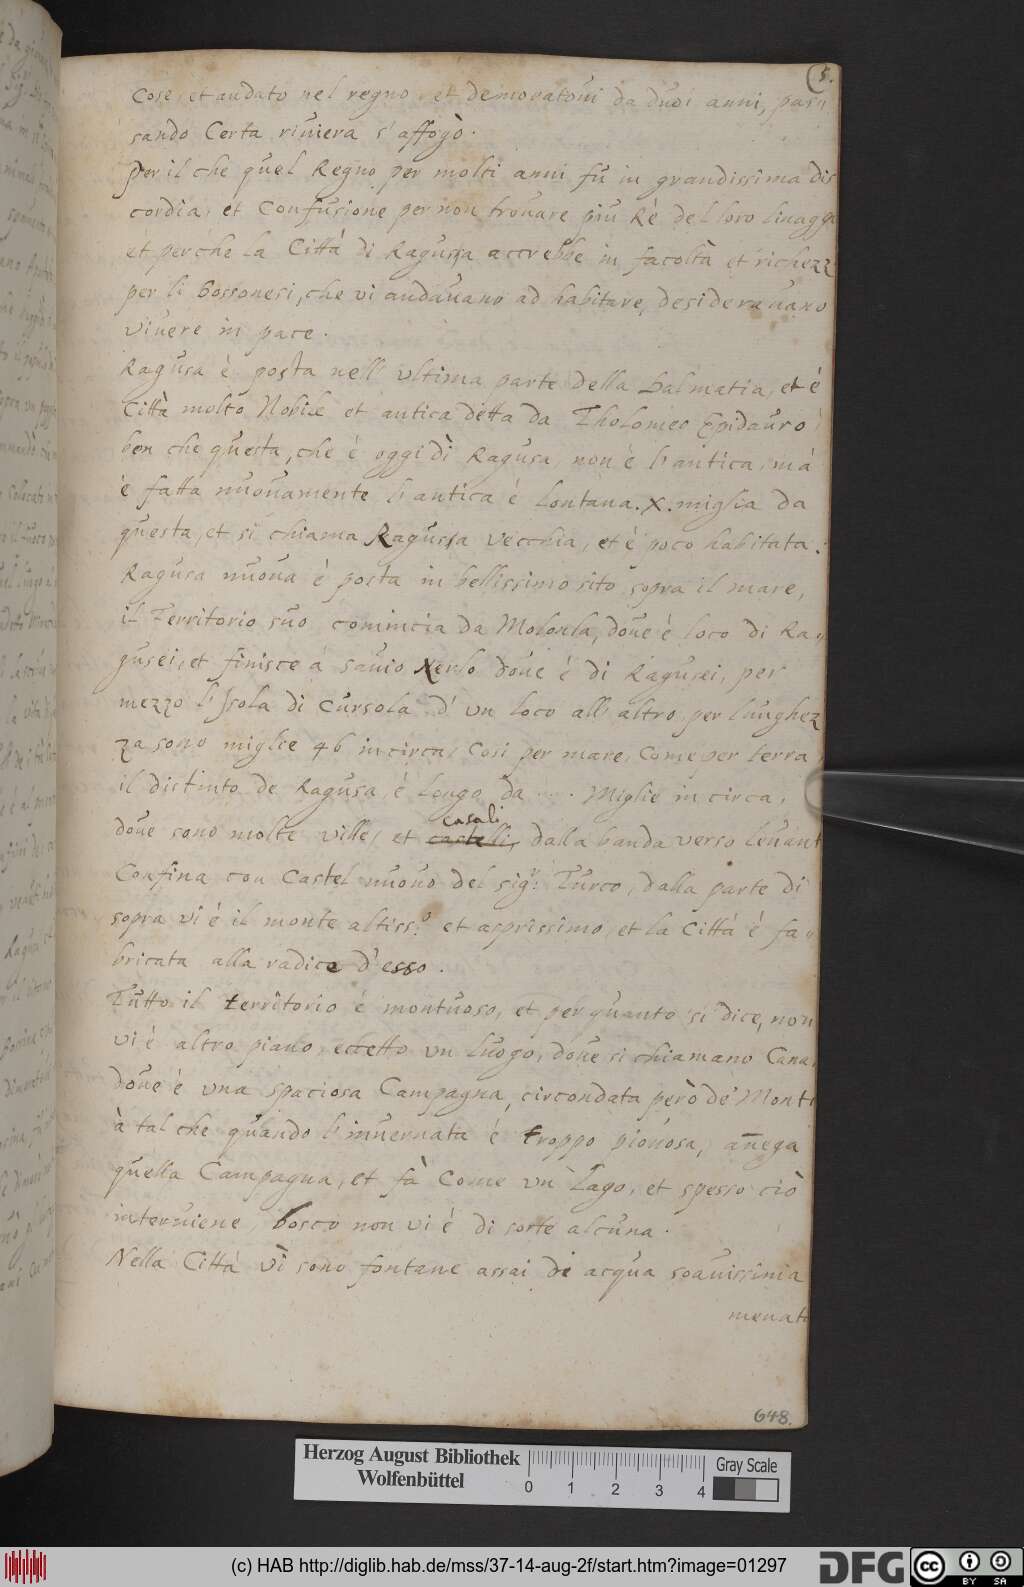 5.
cose, et andato nel regno, et demoratovi da dudi anni, pas=
sando Certa riviera s'affogò.
Per il che quel Regno per molti anni fu in grandissima dis
cordia, et Confusione per non trovare piu Rè del loro linaggi
et perche la Città di Ragusa accrebbe in facoltà et richezz
per li Bossonesi, che vi andavano ad habitare, desideravano
vivere in pace.
Ragusa è posta nell'ultima parte della Dalmatia, et è
Città molto Nobile et antica detta da Tholomeo Epidauro
ben che questa, che è oggi dì Ragusa, non è l'antica, mà
è fatta nuovamente l'antica è lontana .X. miglia da
questa, et si chiama Ragusa vecchia, et è poco habitata.
Ragusa nuova è posta in bellissimo sito sopra il mare,
il Territorio suo comincia da Molonta, dove è loco di Ra=
gusei, et finisce à savio dove è di Ragusei, per
mezzo l'Isola di Cursola d'un loco all'altro per lunghez
za sono miglie 46 incirca, Cosi per mare, Come per terra
il distinto de Ragusa è longo da .... Miglie in circa,
dove sono molte ville, et castelli, casali dalla banda verso levant
Confina con Castel nuovo del sig.r Turco, dalla parte di
sopra vi è il monte altiss.o et asprissimo, et la Città è fa=
bricata alla radice d'esso.
Tutto il territorio è montuoso, et per quanto si dice, non
vi è altro piano, eccetto un luogo, dove si chiamano Cana,
dove è una spaciosa Campagna, circondata però de' Monti
à tal che quando l'invernata è troppo piovosa, añega
quella Campagna, et fà Come un Lago, et spesso ciò
interviene, bosco non vi è di sorte alcuna.
Nella Città vi sono fontane assai di acqua soavissima
menata
648.
Herzog August Bibliothek
Wolfenbüttel
0 1 2 3 4
Gray Scale
(c) HAB http://diglib.hab.de/mss/37-14-aug-2f/start.htm?image=01297
DFG
cc BY SA